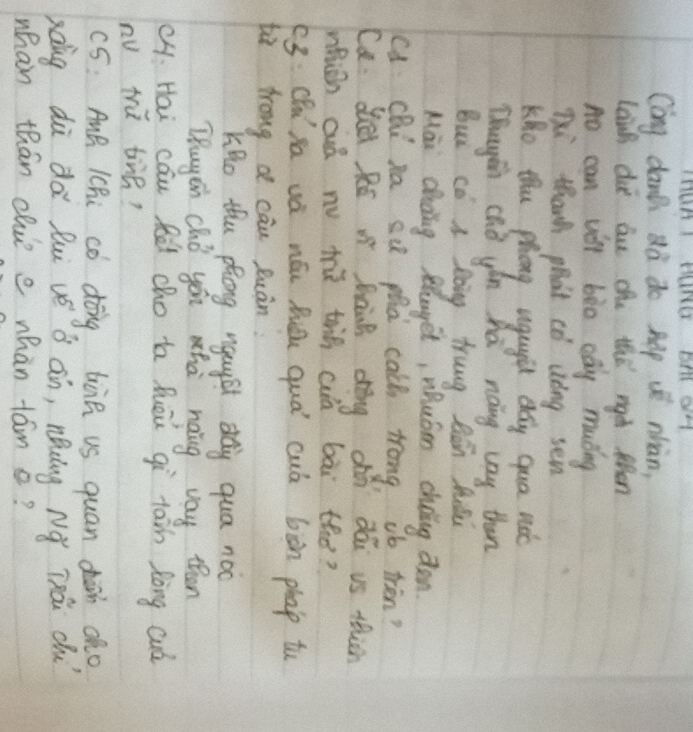 Công danh đã đc hợp về nhàn,
Lành dữ âu chi thế ngợi khen
Ao cạn vớt bèo cấy muống
Trì thanh phát cỏ ương sen
Kho thu phong nguyệt đầy qua nóc
Thuyền chở yên hà nặng vạy then
Bui có 1 lòng trung liễn hiếu
Mài chăng khuyết, nhuộm chăng đen.
C1: chỉ ra sự phá cách trong vb trên?
C2: liệt kê n~ hành động đối đãi vs thiên
nhiên của nv trữ tình của bài thơ?
C3: chỉ ra và nêu hiệu quả của biện pháp tu
từ trong 2 câu luận:
Kho thu phong nguyệt đầy qua nóc
Thuyền chở yên hà nặng vạy then
C4: Hai câu kết cho ta hiểu gì tấm lòng của
nv trữ tình?
C5: Anh/chị có đồng tình vs quan điểm cho
rằng dù đã lui về ở ẩn, nhưng Ng Trãi chỉ
nhàn thân chứ o nhàn tâm o?